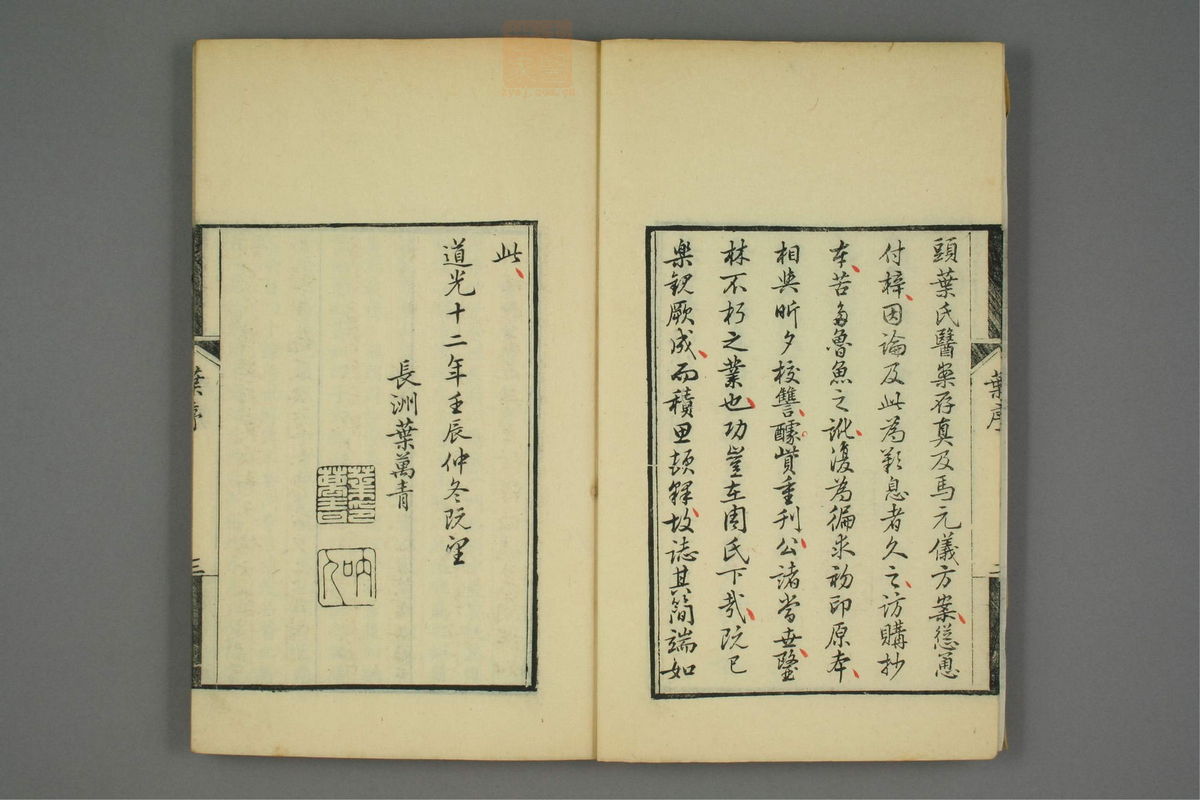 頭葉氏醫案存真及馬元儀方案慫恿
付梓因論及此為歎息者久之訪購抄
本苦多魯魚之訛復為徧求初印原本
相與昕夕校讐醵貲重刊公諸當世醫
林不朽之業也功豈在周氏下哉阮已
樂觀厥成而積思頓釋故誌其簡端如
此
道光十二年壬辰仲冬既望
長洲葉萬青
葉序
三
葉序
三